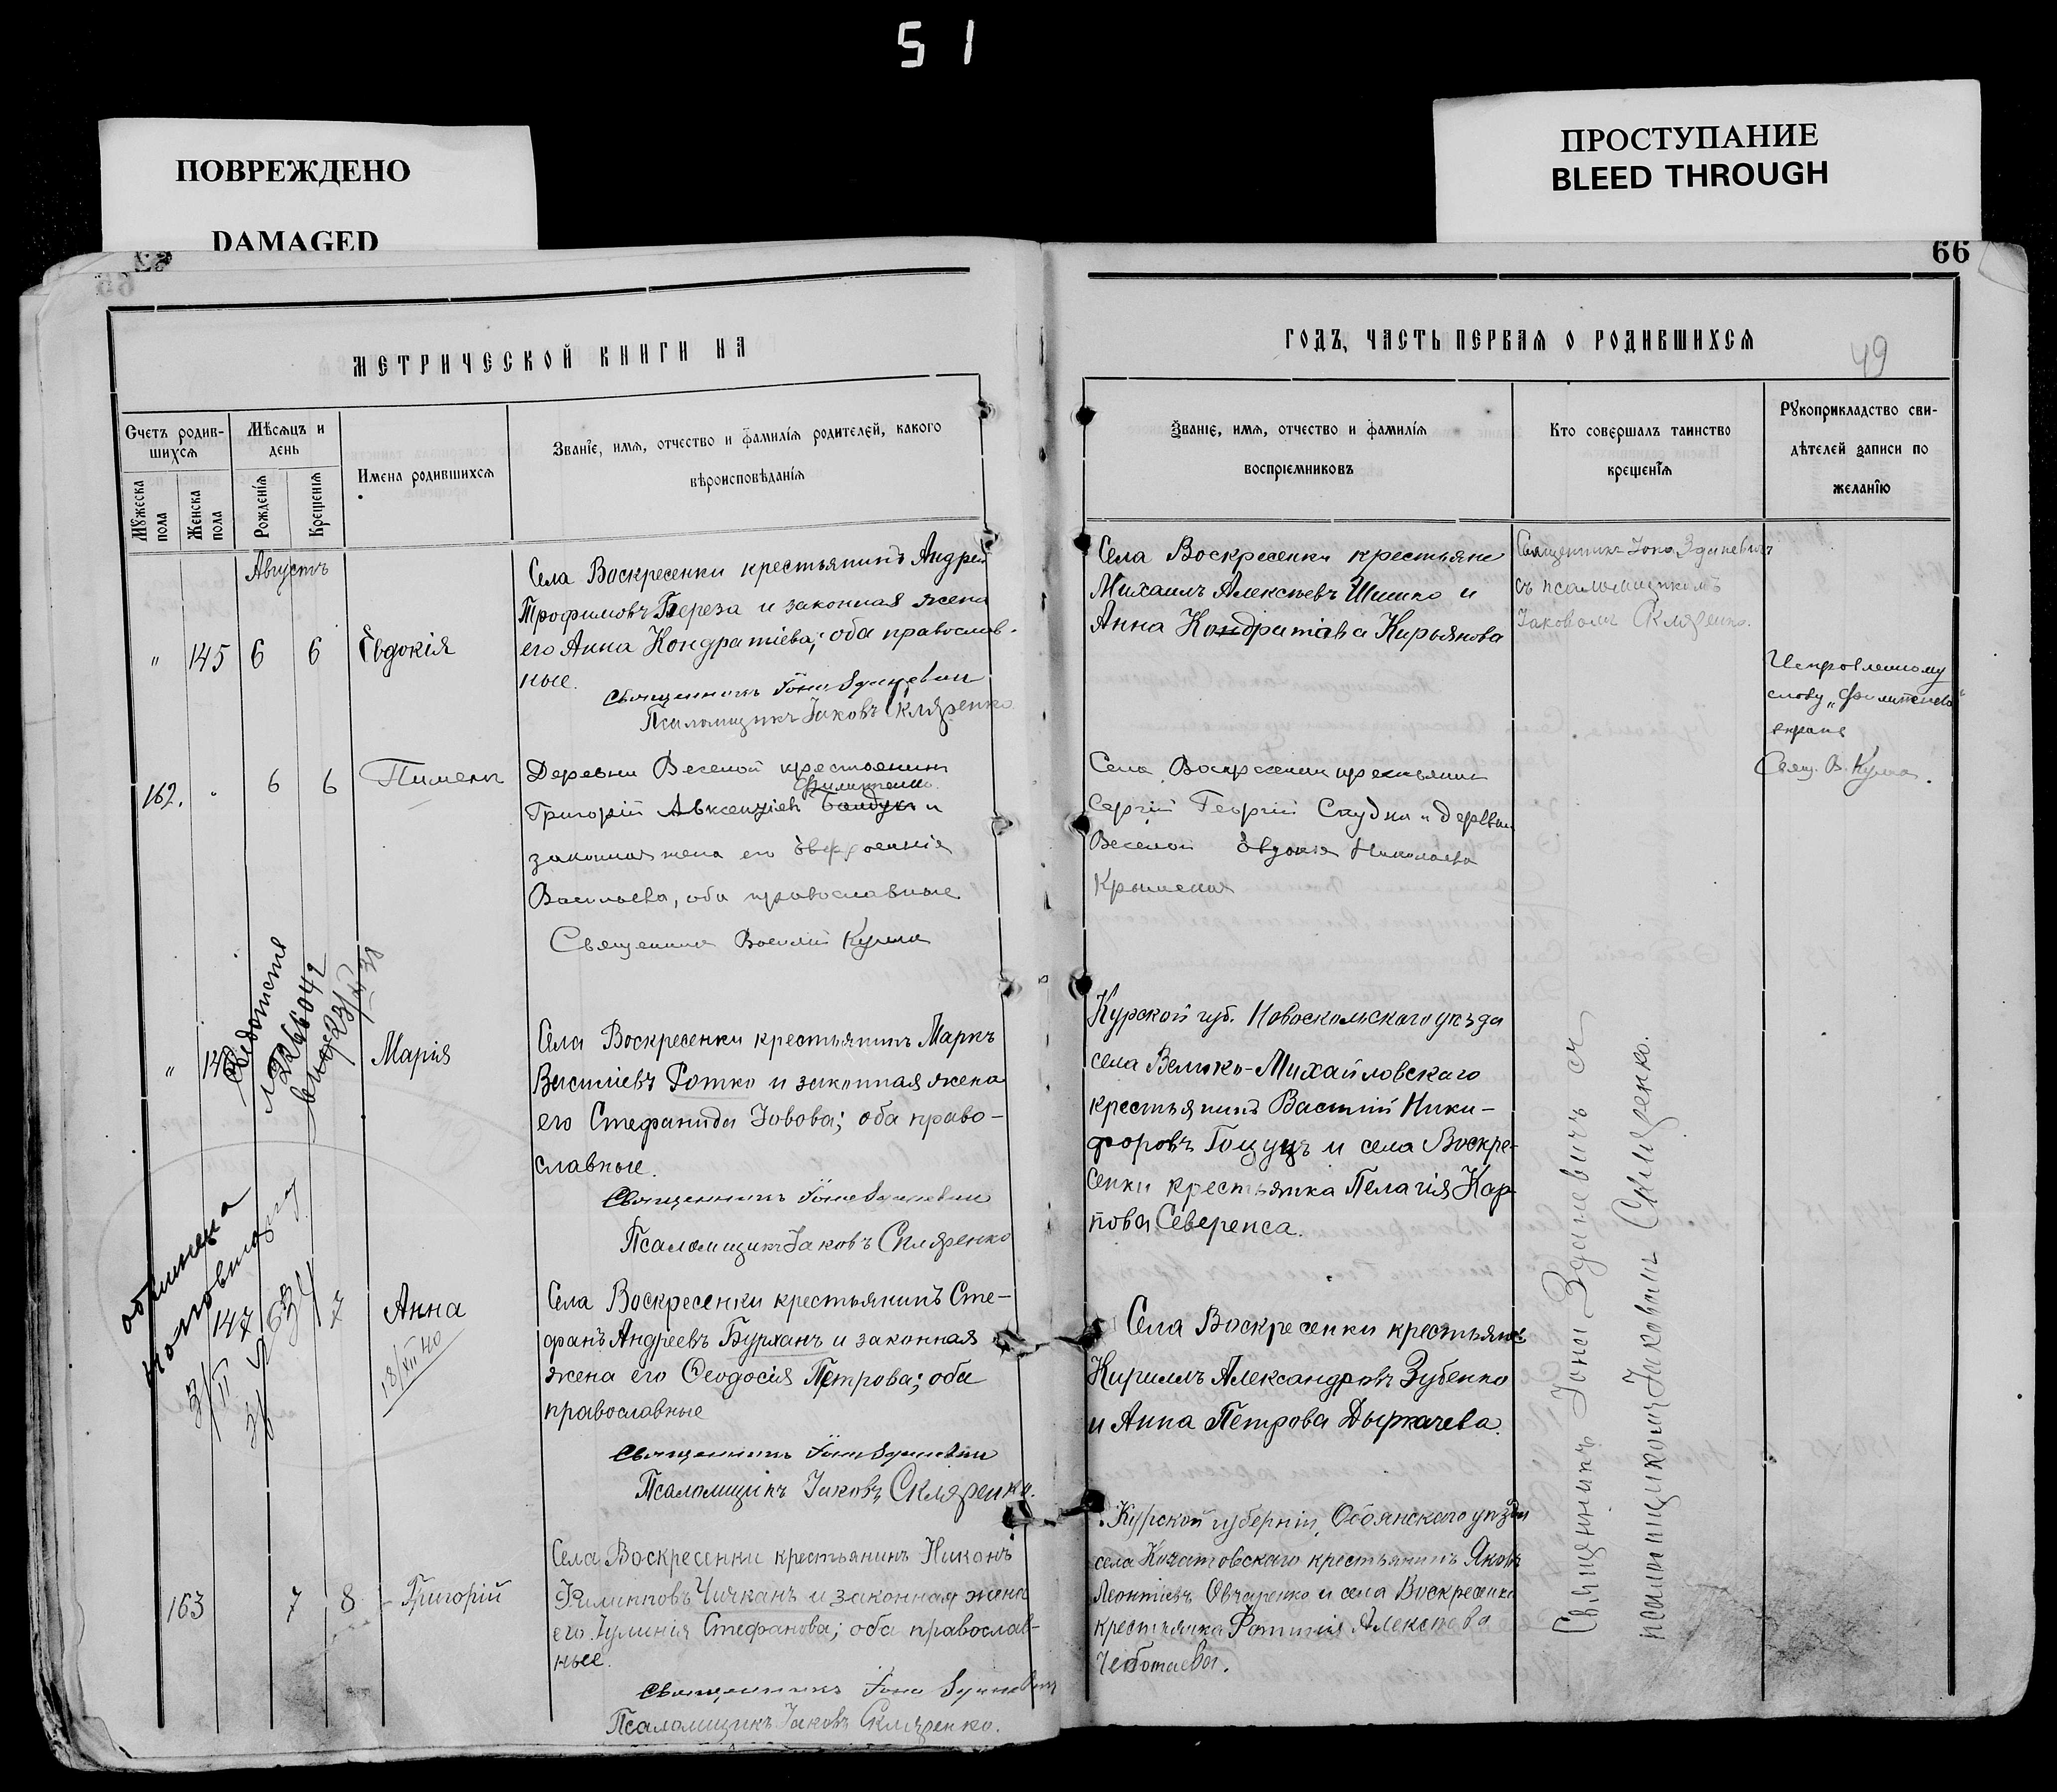 51
ПОВРЕЖДЕНО
DAMAGED
ПРОСТУПАНИЕ
BLEED THROUGH
66
49
МЕТРИЧЕСКОЙ КНИГИ НА
ГОДЪ, ЧАСТЬ ПЕРВАЯ О РОДИВШИХСЯ
Счетъ родив-
шихся
Мужеска
пола
Женска
пола
Мѣсяцъ и
день
Рожденія
Крещенія
Имена родившихся
Званіе, имя, отчество и фамилія родителей, какого
вѣроисповѣданія
Званіе, имя, отчество и фамилія
воспріемниковъ
Кто совершалъ таинство
крещенія
Рукоприкладство сви-
дѣтелей записи по
желанію
Августъ
" 145 6 6 Евдокія
Села Воскресенки крестьянинъ Андрей
Трофимовъ Береза и законная жена
его Анна Кондратіева; оба православ-
ные.
Священникъ Іона Зданевич
Псаломщикъ Іаковъ Скляренко
Села Воскресенки крестьяне
Михаилъ Алексѣевъ Шишко и
Анна Кондратіева Кирьянова
Священникъ Іона Зданевичъ
съ псаломщикомъ
Іаковомъ Скляренко.
Исправленному
слову „Филипенко“
вѣрить
Свящ. В. Кулма.
162. " 6 6 Пименъ
Деревни Веселой крестьянинъ
Филипенко
Григорій Авксентіев и
законная жена его Евфросинія
Васильева, оба православные
Священник Василій Кулма
Села Воскресенки крестьянин
Сергій Георгій Скудна и деревни
Веселой Евдокія Николаева
Крымская
" Марія
Села Воскресенки крестьянинъ Маркъ
Василіевъ Ротко и законная жена
его Стефанида Іовова; оба право-
славные.
Священникъ Іона Зданевич
Псаломщикъ Іаковъ Скляренко
Курской губ. Новоскольскаго уѣзда
села Велико-Михайловскаго
крестьянинъ Василій Ники-
форовъ Гощуцъ и села Воскре-
сенки крестьянка Пелагія Кар-
пова Северенса.
147 7 Анна
18/XII 40
Села Воскресенки крестьянинъ Сте-
фанъ Андреевъ Бурханъ и законная
жена его Ѳеодосія Петрова; оба
православные
Священникъ Іона Зданевич
Псаломщикъ Іаковъ Скляренко.
Села Воскресенки крестьянинъ
Кириллъ Александровъ Зубенко
и Анна Петрова Дыркачева.
163 7 8 Григорій
Села Воскресенки крестьянинъ Никонъ
Филипповъ Чичканъ и законная жена
его Іулинія Стефанова; оба православ-
ные.
Священникъ Іона Зданевич
Псаломщикъ Іаковъ Скляренко.
Курской губерніи, Обоянскаго уѣзда
села Кочатовскаго крестьянинъ Яковъ
Леонтіевъ Овчаренко и села Воскресенки
крестьянка Фотинія Алексѣева
Чеботаева.
Священникъ Іона Зданевичъ съ
псаломщикомъ Іаковомъ Скляренко.